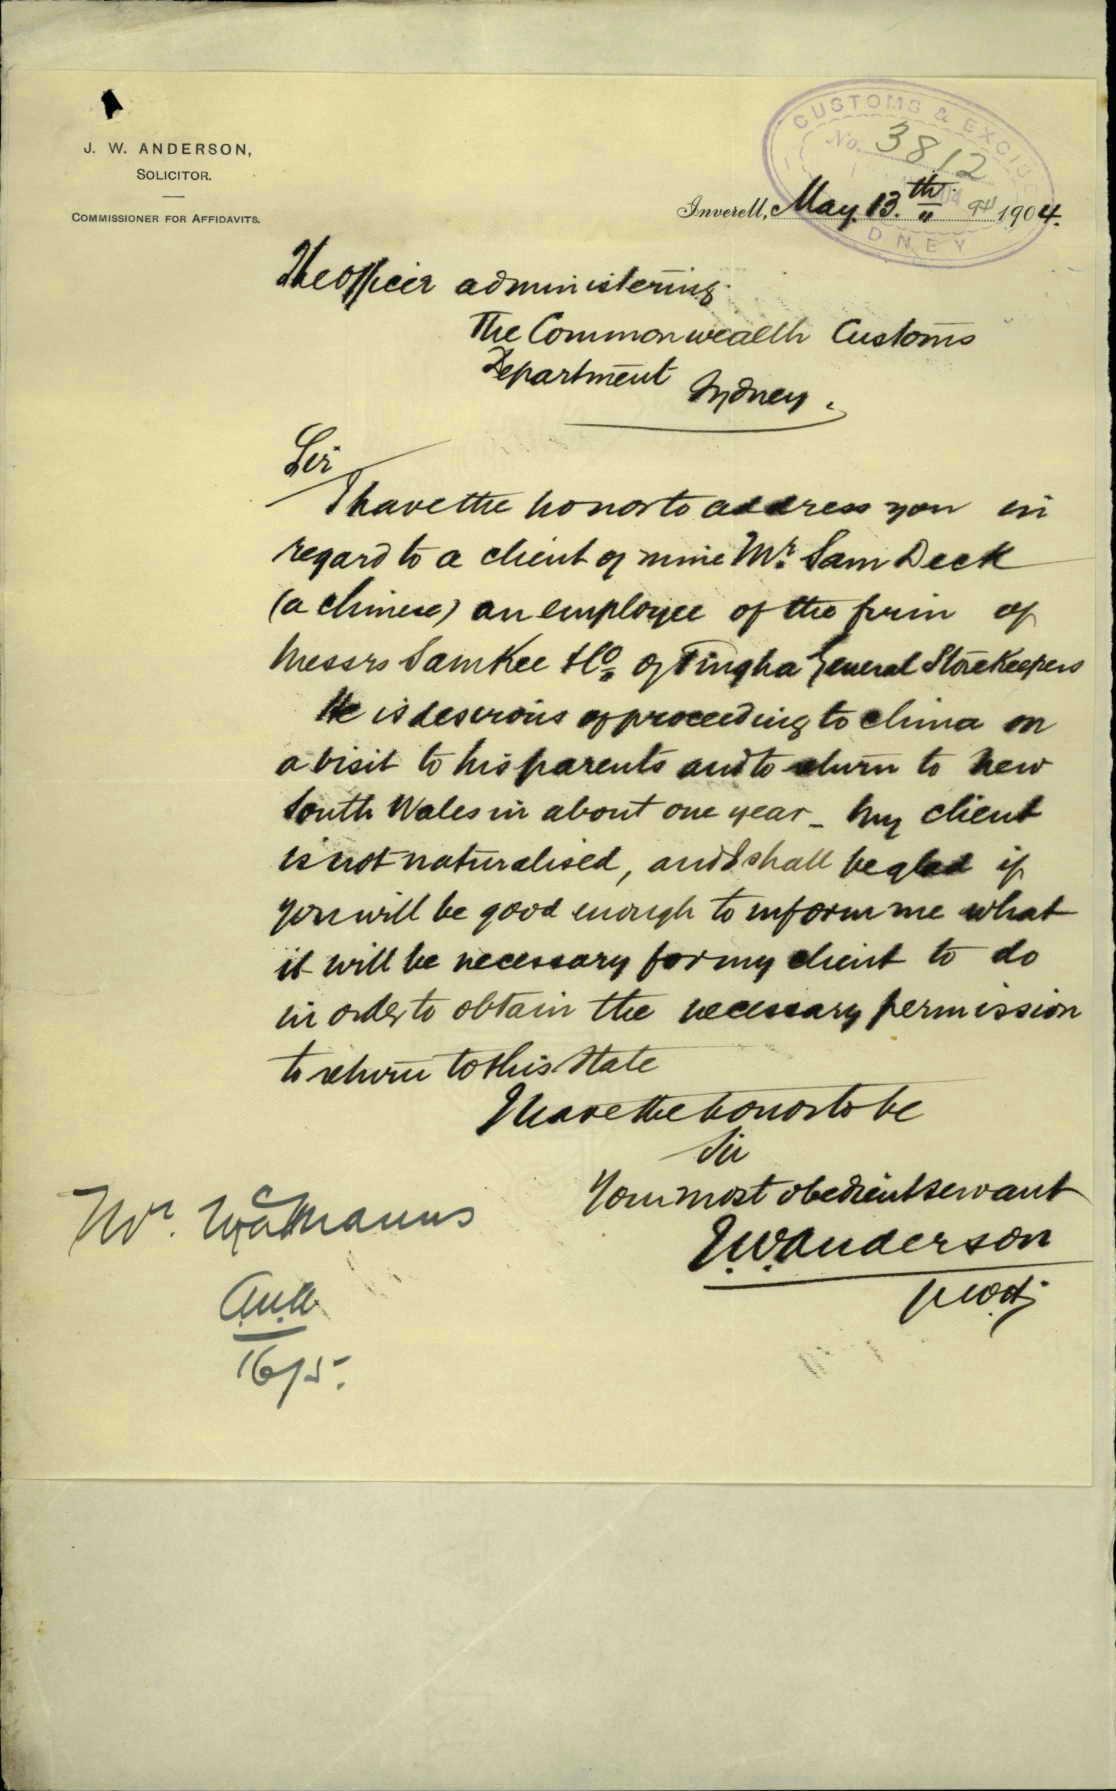 J. W. ANDERSON,
SOLICITOR.
COMMISSIONER FOR AFFIDAVITS.
CUSTOMS & EXCISE
No. 3812
Inverell, May. 13.th 1904.
The Officer administering
The Commonwealth Customs
Department Sydney.
Sir
I have the honor to address you in
regard to a client of mine Mr. Sam Deck
(a chinese) an employee of the firm of
Messrs Sam Kee & Co. of Tingha General Storekeepers
He is desirous of proceeding to china on
a visit to his parents and to return to New
South Wales in about one year - My client
is not naturalised, and I shall be glad if
you will be good enough to inform me what
it will be necessary for my client to do
in order to obtain the necessary permission
to return to this State
I have the honor to be
Sir
Your most obedient servant
J.W. Anderson
Mr.
16/5.